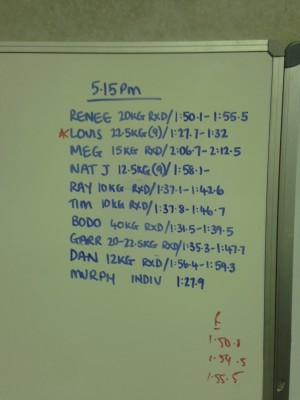 5.15pm
RENEE 20KG RXD/1:50.1-1:55.5
LOUIS 22.5KG(9)/1:27.7-1:32
MEG 15KG RXD/2:06.7-2:12.5
NAT J 12.5KG(9)/1:58.1-
RAY 10KG RXD/1:37.1-1:42.6
TIM 10KG RXD/1:37.8-1:46.7
BODO 40KG RXD/1:31.5-1:39.5
GARR 20-22.5KG RXD/1:35.3-1:47.7
DAN 12KG RXD/1:56.4-1:59.3
MURPH INDIV 1:27.9
1:50.8
1:54.5
1:55.5